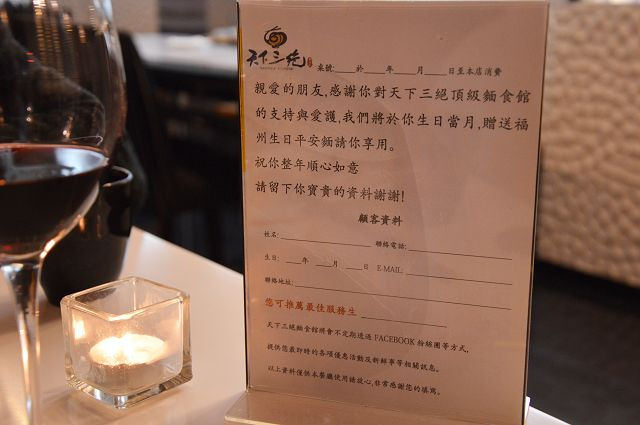 天下三絕
桌號:____於____年____月____日至本店消費
親愛的朋友,感謝你對天下三絕頂級麵食館
的支持與愛護,我們將於你生日當月,贈送福
州生日平安麵請你享用。
祝你整年順心如意
請留下你寶貴的資料謝謝!
顧客資料
姓名: ________ 聯絡電話: ________
生日: ____年____月____日 E-MAIL: ________
聯絡地址: ________
您可推薦最佳服務生 ________
天下三絕麵食館將會不定期透過 FACEBOOK 粉絲團等方式,
提供您最即時的各項優惠活動及新鮮事等相關訊息。
以上資料僅供本餐廳使用請放心,非常感謝您的填寫。